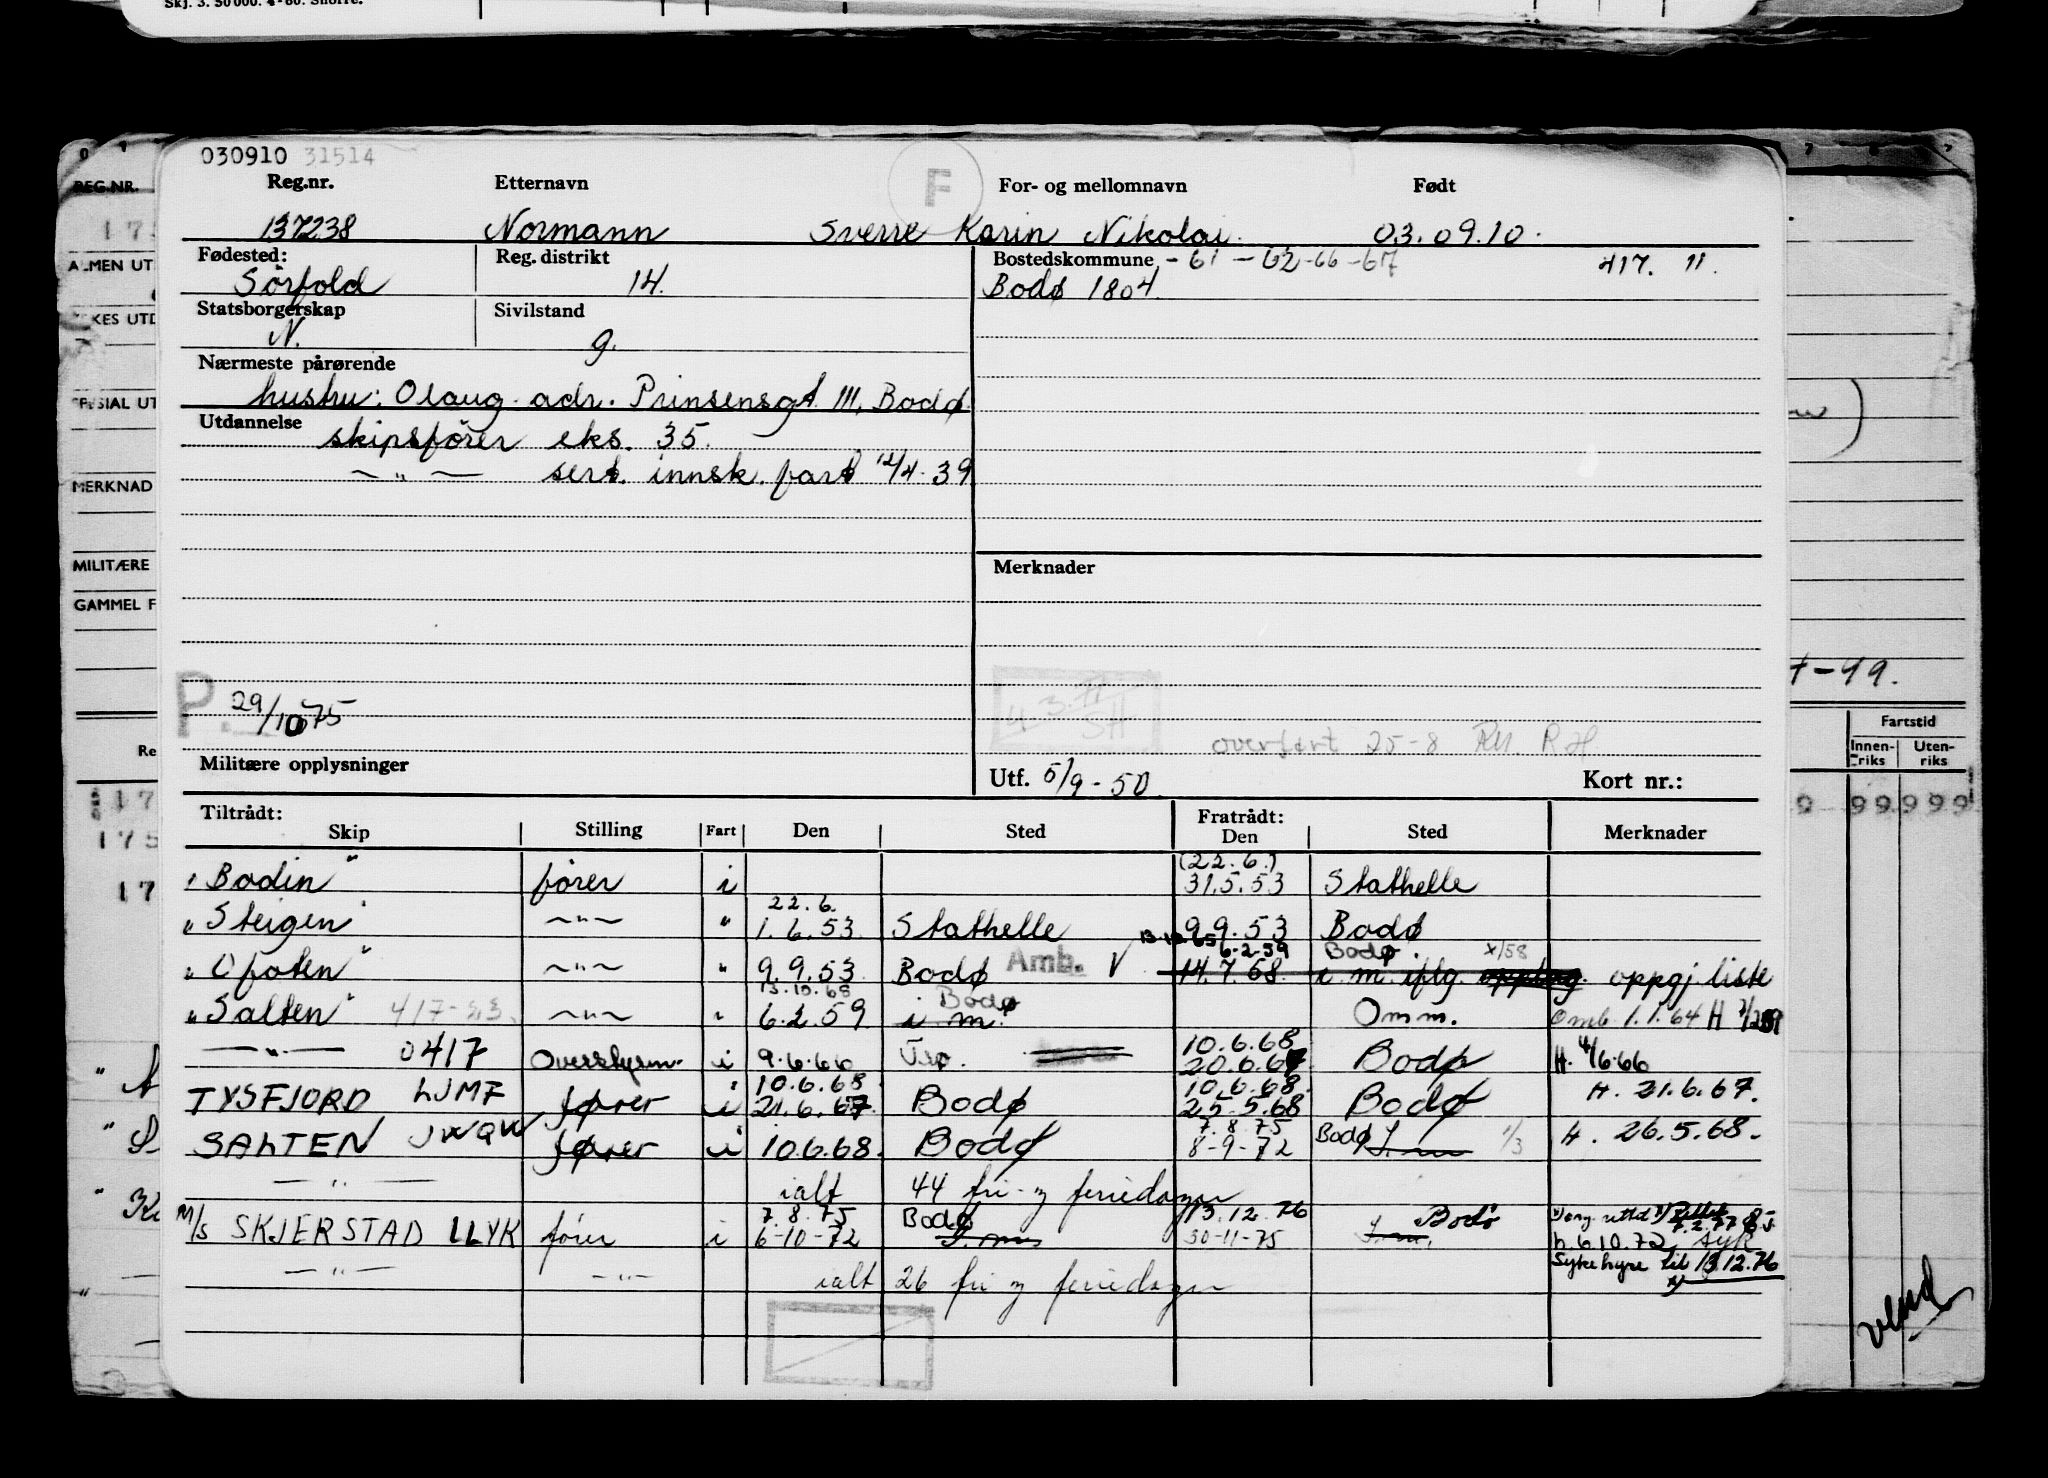 Skj. 3. 50 000. 4-60. Snorre.
030910 31514
Reg.nr. Etternavn F For- og mellomnavn Født
137238 Normann Sverre Karin Nikolai 03.09.10.
Fødested: Reg. distrikt Bostedskommune - 61 - 62 - 66 - 67 417. 11.
Sörfold 14. Bodø 1804.
Statsborgerskap Sivilstand
N. g.
Nærmeste pårørende
hustru: Olaug adr. Prinsensgt. 111, Bodø.
Utdannelse
skipsfører eks. 35.
— " — sert. innsk. fart 12/4-39
Merknader
P. 29/10 75
overført 25-8
Militære opplysninger Utf. 5/9-50. Kort nr.:
Tiltrådt: Fratrådt:
Skip Stilling Fart Den Sted Den Sted Merknader
(22.6.)
"Bodin" fører i 31.5.53 Stathelle
22.6.
"Steigen" — " — " 1.6.53. Stathelle 9.9.53 Bodø
6.2.59 Bodø. x/58
"Ofoten" — " — " 9.9.53. Bodø Amb. V 14.7.68 i.m. iflg. opptag. oppgj. liste
13.10.68 Bodø
"Salten" 417-23. — " — " 6.2.59. i m. Omm. Omb. 1.1.64 H
10.6.68
— " — 0417 Overstyrm. i 9.6.66 20.6.67 Bodø H. 4/6.66
10.6.68 10.6.68
TYSFJORD LJMF fører i 21.6.67. Bodø 25.5.68 Bodø H. 21.6.67.
7.8.75 Bodø
SALTEN JWQW fører i 10.6.68. Bodø 8-9-72 1/3 H. 26.5.68.
— " — ialt 44 fri- og feriedager
7.8.75 Bodø 13.12.76 Bodø
M/S SKJERSTAD LLYK fører i 6-10-72 30-11-75 h. 6.10.72 syk
Sykehyre til 13.12.76
— " — — " — ialt 26 fri og feriedager
REG.NR.
ALMEN UT
YRKES UTD
SPESIAL UT
MERKNAD
MILITÆRE
GAMMEL F
Re
175
17
4-49.
Fartstid
Innen-riks Uten-riks
9 99 999